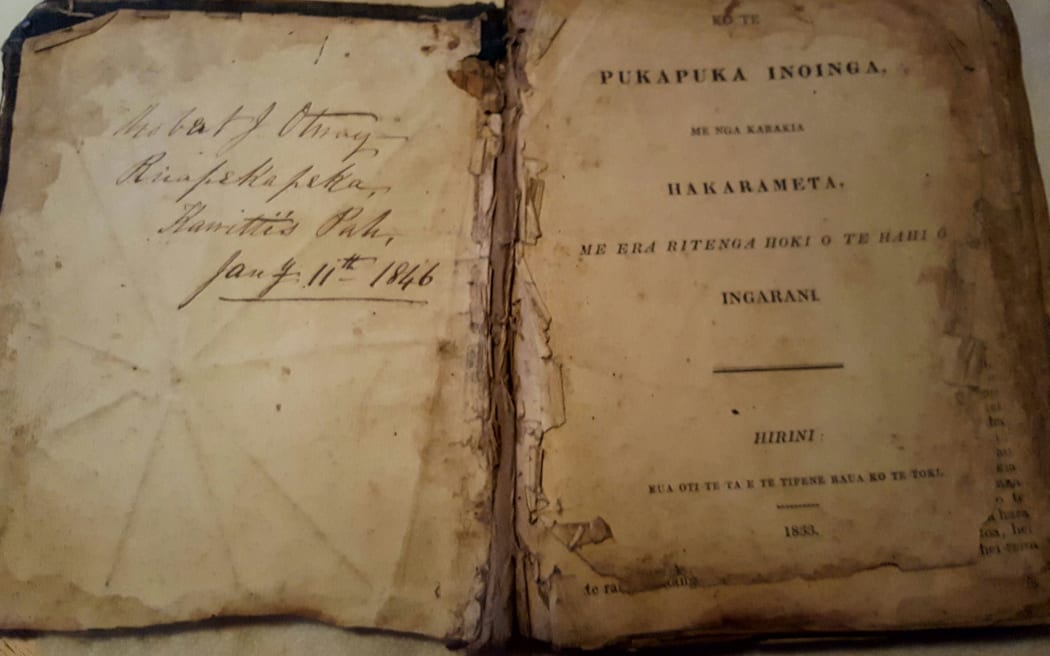 Robert J Otway
Ruapekapeka,
Kawittïs Pah,
Jany 11th 1846
KO TE
PUKAPUKA INOINGA,
ME NGA KARAKIA
HAKARAMETA,
ME ERA RITENGA HOKI O TE HAHI O
INGARANI.
HIRINI:
KUA OTI TE TA E TE TIPENE RAUA KO TE TOKI.
1833.
te